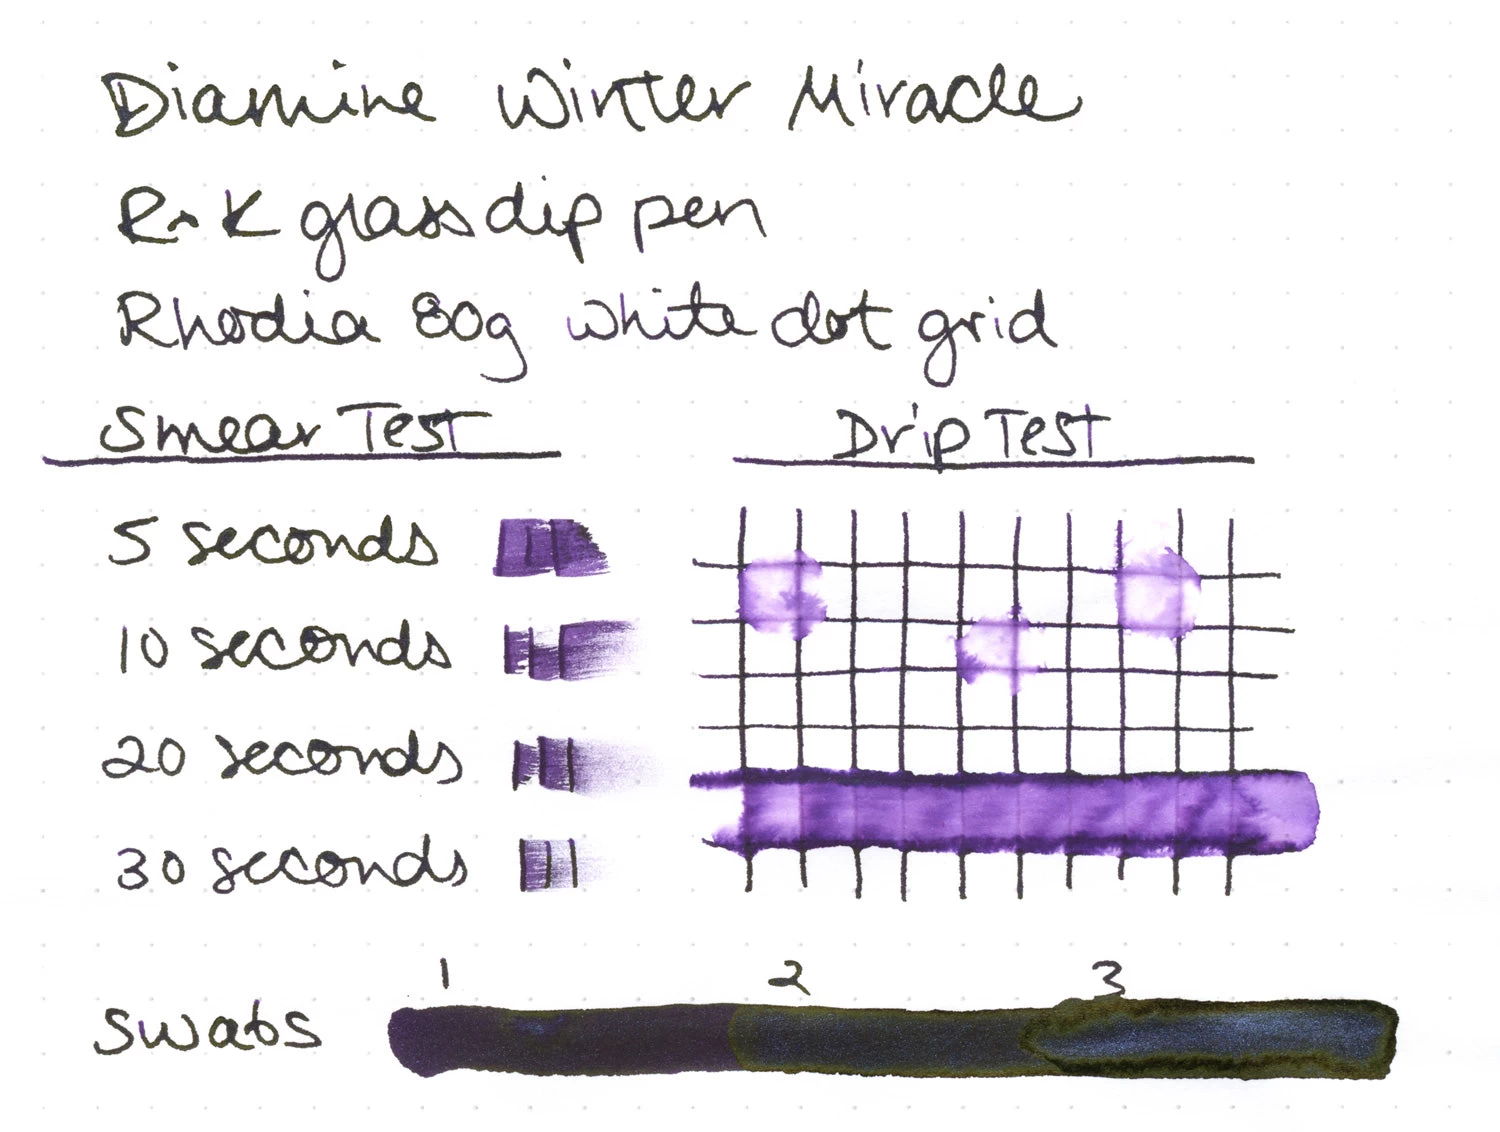 Diamine Winter Miracle
R~K glass dip pen
Rhodia 80g white dot grid
Smear Test
Drip Test
5 seconds
10 seconds
20 seconds
30 seconds
1 2 3
Swabs